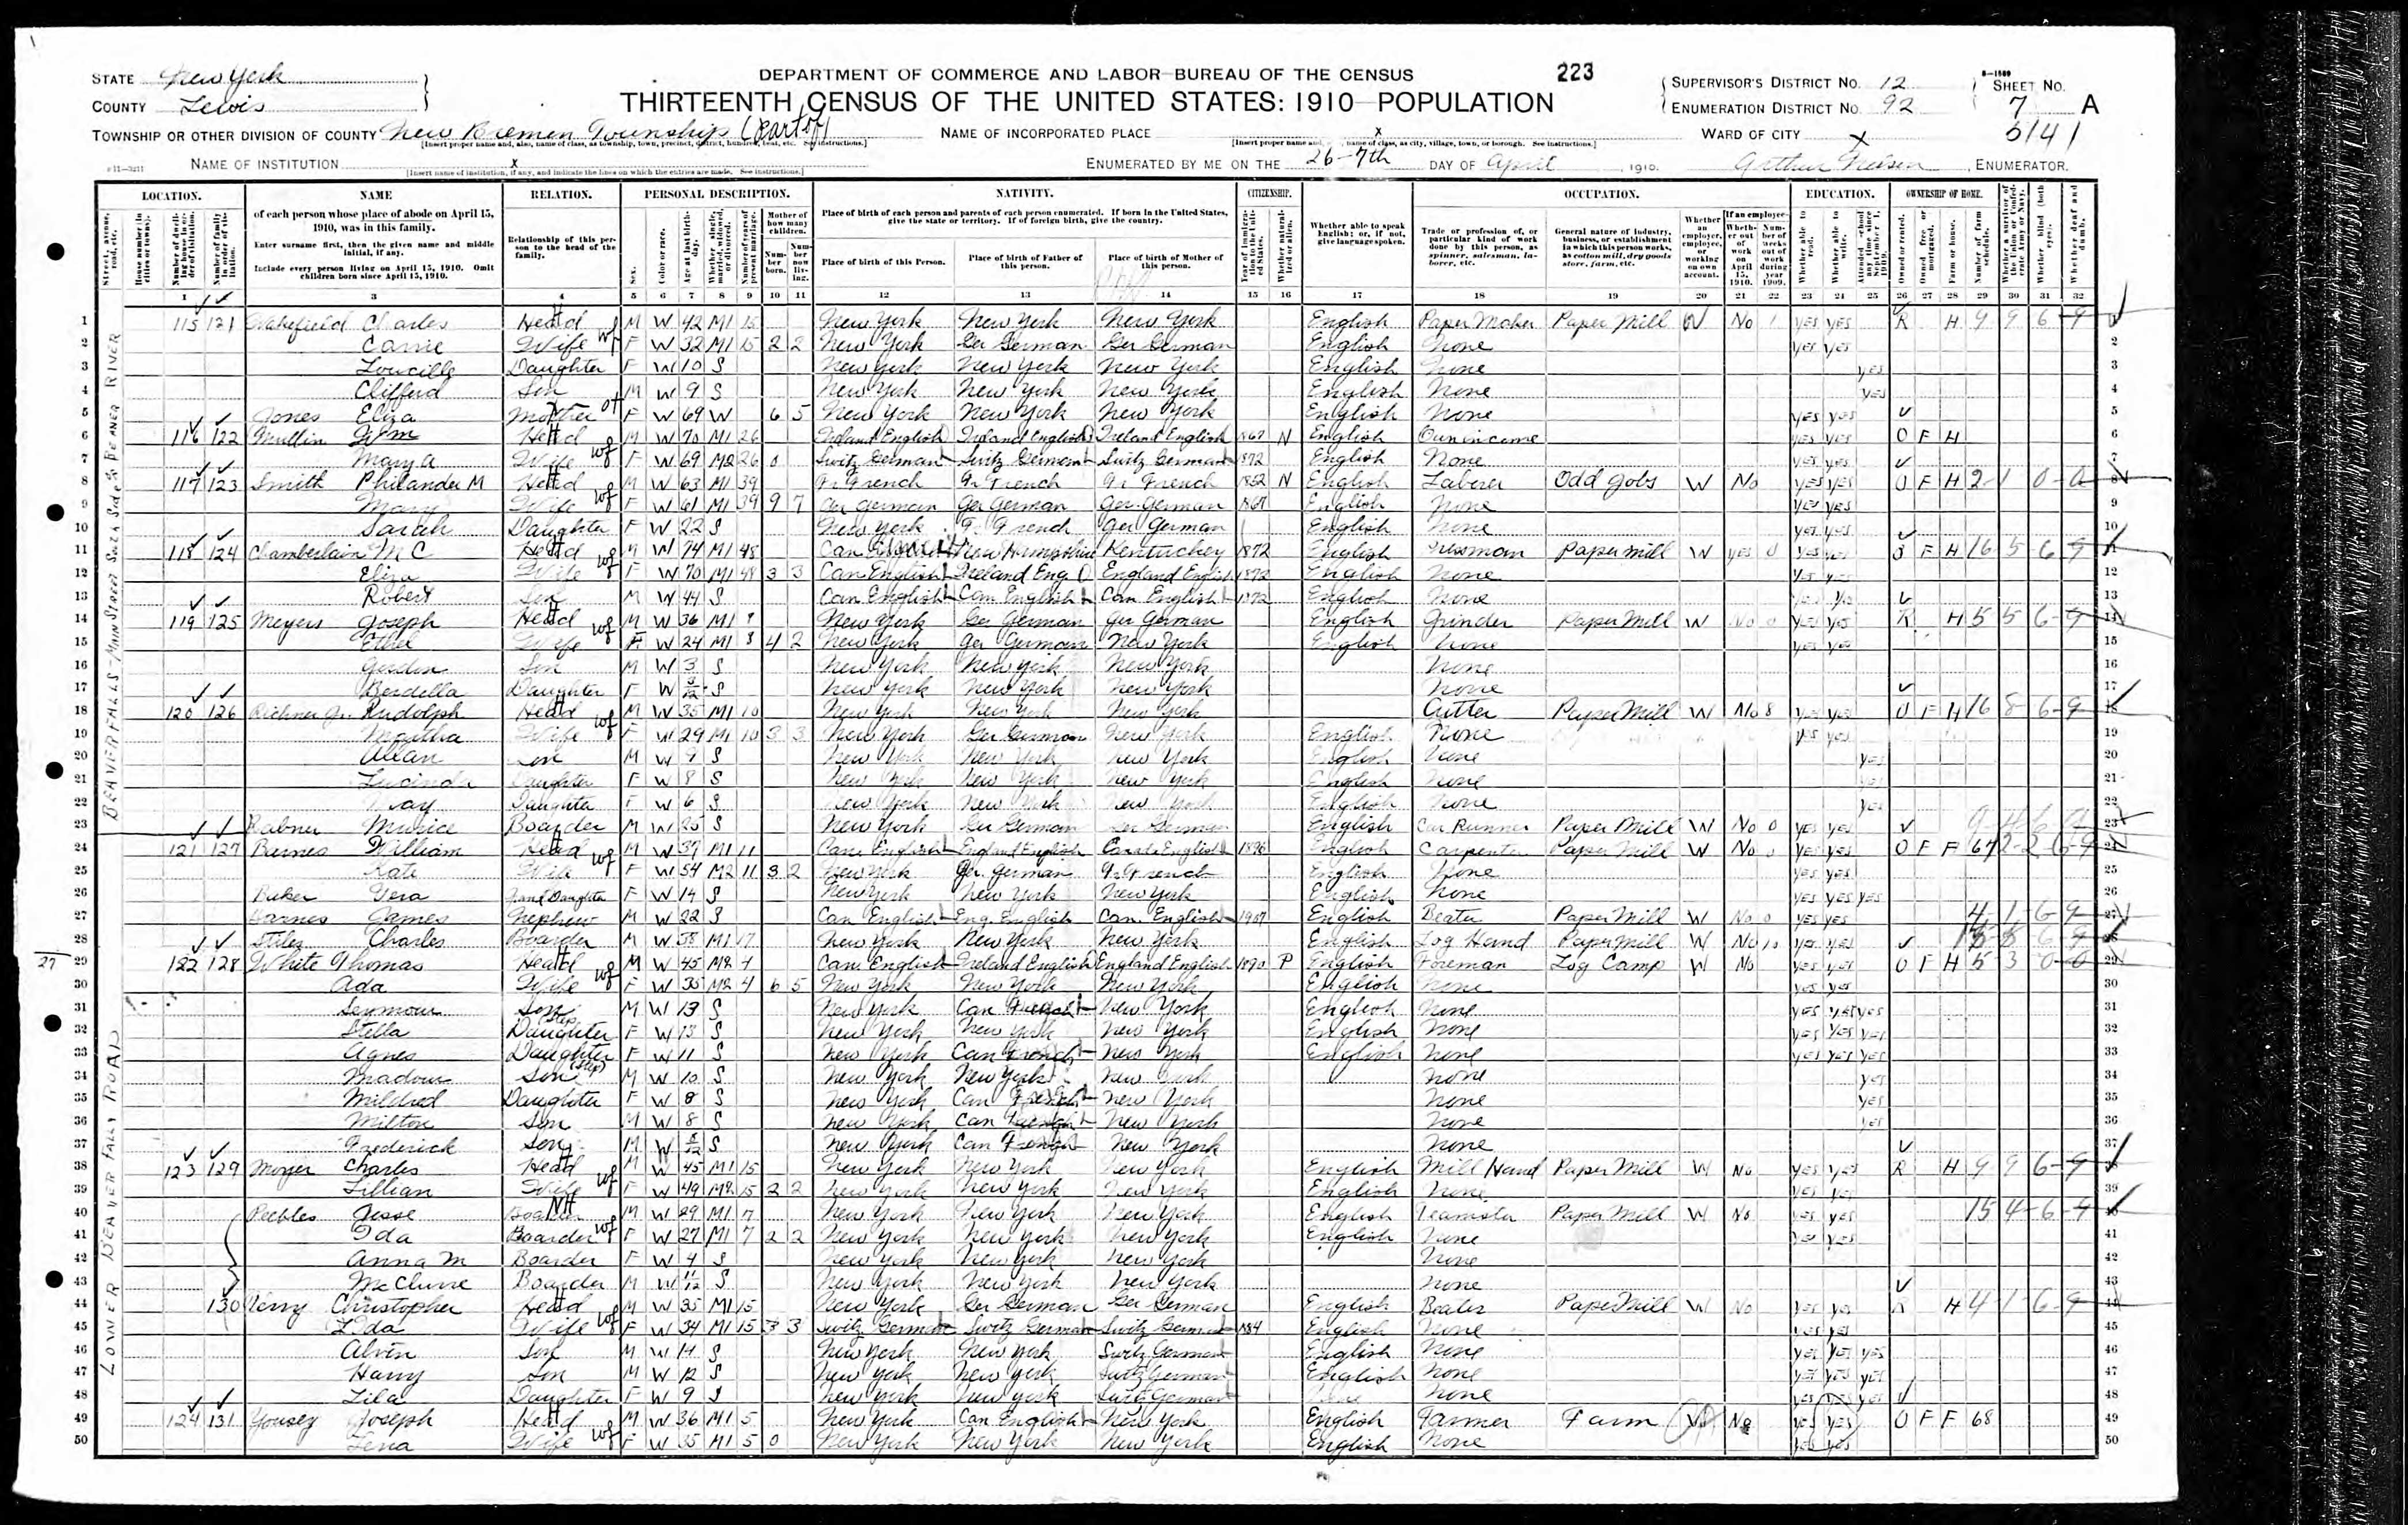 STATE New York
COUNTY Lewis
TOWNSHIP OR OTHER DIVISION OF COUNTY New Bremen Township (Part of)
[Insert proper name and, also, name of class, as township, town, precinct, district, hundred, beat, etc. See instructions.]
NAME OF INSTITUTION X
[Insert name of institution, if any, and indicate the lines on which the entries are made. See instructions.]
DEPARTMENT OF COMMERCE AND LABOR—BUREAU OF THE CENSUS
THIRTEENTH CENSUS OF THE UNITED STATES: 1910—POPULATION
223
NAME OF INCORPORATED PLACE X
[Insert proper name and, name of class, as city, village, town, or borough. See instructions.]
ENUMERATED BY ME ON THE 26-7th DAY OF April, 1910. Arthur Nelsen, ENUMERATOR.
SUPERVISOR'S DISTRICT NO. 12
ENUMERATION DISTRICT NO. 92
SHEET NO. 7 A
WARD OF CITY X
5141
LOCATION. NAME RELATION. PERSONAL DESCRIPTION. NATIVITY. CITIZENSHIP. OCCUPATION. EDUCATION. OWNERSHIP OF HOME.
of each person whose place of abode on April 15, 1910, was in this family.
Enter surname first, then the given name and middle initial, if any.
Include every person living on April 15, 1910. Omit children born since April 15, 1910.
Relationship of this person to the head of the family.
Place of birth of each person and parents of each person enumerated. If born in the United States, give the state or territory. If of foreign birth, give the country.
Place of birth of this Person. Place of birth of Father of this person. Place of birth of Mother of this person.
Whether able to speak English; or, if not, give language spoken.
1 2 3 4 5 6 7 8 9 10 11 12 13 14 15 16 17 18 19 20 21 22 23 24 25 26 27 28 29 30 31 32
1 115 121 Wakefield Charles Head M W 42 M1 15 New York New York New York English Paper Maker Paper Mill W No 1 yes yes R H 9 9 6 9
2 Carrie Wife F W 32 M1 15 2 2 New York Ger German Ger German English None yes yes
3 Loucille Daughter F W 10 S New York New York New York English None yes
4 Clifford Son M W 9 S New York New York New York English None yes
5 Jones Eliza Mother F W 69 W 6 5 New York New York New York English None yes yes
6 116 122 Mullin Wm Head M W 70 M1 26 Ireland English Ireland English Ireland English 1867 N English Own income yes yes O F H
7 Mary A Wife F W 69 M2 26 0 Switz German Switz German Switz German 1872 English None yes yes
8 117 123 Smith Philander M Head M W 63 M1 39 Fr French Fr French Fr French 1852 N English Laberer Odd Jobs W No yes yes O F H 2 1 0 0
9 Mary Wife F W 61 M1 39 9 7 Ger German Ger German Ger German English None yes yes
10 Sarah Daughter F W 22 S New York Fr French Ger German English None yes yes
11 118 124 Chamberlain M C Head M W 74 M1 48 Can English New Hampshire Kentuckey 1872 English Pressman Paper mill W yes 0 yes yes O F H 16 5 6 9
12 Eliza Wife F W 70 M1 48 3 3 Can English Ireland Eng England English 1872 English None yes yes
13 Robert Son M W 44 S Can English Can English Can English 1872 English None yes yes
14 119 125 Meyers Joseph Head M W 36 M1 8 New York Ger German Ger German English Grinder Paper Mill W No 0 yes yes R H 5 5 6 9
15 Ethel Wife F W 24 M1 8 4 2 New York Ger German New York English None yes yes
16 Gordon Son M W 3 S New York New York New York None
17 Berdella Daughter F W S New York New York New York None
18 120 126 Jr. Rudolph Head M W 35 M1 10 New York New York New York Cutter Paper Mill W No 8 yes yes O F H 16 8 6 9
19 Martha Wife F W 29 M1 10 3 3 New York Ger German New York English None yes yes
20 Allan Son M W 9 S New York New York New York English None yes
21 Lucinda Daughter F W 8 S New York New York New York English None yes
22 May Daughter F W 6 S New York New York New York English None yes
23 Rabner Murice Boarder M W 25 S New York Ger German Ger German English Car Runner Paper Mill W No 0 yes yes
24 121 127 Barnes William Head M W 37 M1 11 Can English England English Canada English 1896 English Carpenter Paper Mill W No 0 yes yes O F F 67
25 Kate Wife F W 54 M2 11 3 2 New York Ger German Fr French English None yes yes
26 Baker Vera Grand Daughter F W 14 S New York New York New York English None yes yes yes
27 Barnes James Nephew M W 22 S Can English Eng English Can English 1907 English Beater Paper Mill W No 0 yes yes 4 1 6 9
28 Stiles Charles Boarder M W 38 M1 17 New York New York New York English Log Hand Paper Mill W No yes yes
29 122 128 White Thomas Head M W 45 M2 4 Can English Ireland English England English 1890 P English Foreman Log Camp W No yes yes O F H 5 3 0 0
30 Ada Wife F W 35 M2 4 6 5 New York New York New York English None yes yes
31 Seymour Son M W 13 S New York Can French New York English None yes yes yes
32 Stella Daughter (Step) F W 13 S New York New York New York English None yes yes yes
33 Agnes Daughter F W 11 S New York Can French New York English None yes yes yes
34 Madour Son (Step) M W 10 S New York New York New York None yes
35 Mildred Daughter F W 8 S New York Can French New York None yes
36 Milton Son M W 8 S New York Can French New York None yes
37 Frederick Son M W S New York Can French New York None
38 123 129 Moyer Charles Head M W 45 M1 15 New York New York New York English Mill Hand Paper Mill W No yes yes R H 9 9 6 9
39 Lillian Wife F W 49 M2 15 2 2 New York New York New York English None yes yes
40 Peebles Jesse Boarder M W 29 M1 7 New York New York New York English Teamster Paper Mill W No yes yes 15 4 6 9
41 Ida Boarder F W 27 M1 7 2 2 New York New York New York English None yes yes
42 Anna M Boarder F W 4 S New York New York New York None
43 McClure Boarder M W 11/12 S New York New York New York None
44 130 Christopher Head M W 35 M1 15 New York Ger German Ger German English Beater Paper Mill W No yes yes R H 4 1 6 9
45 Lda Wife F W 34 M1 15 3 3 Switz German Switz German Switz German 1884 English None yes yes
46 Alvin Son M W 14 S New York New York Switz German English None yes yes yes
47 Harry Son M W 12 S New York New York Switz German English None yes yes yes
48 Lila Daughter F W 9 S New York New York Switz German None yes yes yes
49 124 131 Yousey Joseph Head M W 36 M1 5 New York Can English New York English Farmer Farm No yes yes O F F 68
50 Lena Wife F W 35 M1 5 0 New York New York New York English None yes yes
BEAVER FALLS—Main Street South Side to BEAVER RIVER
LOWER BEAVER FALLS ROAD